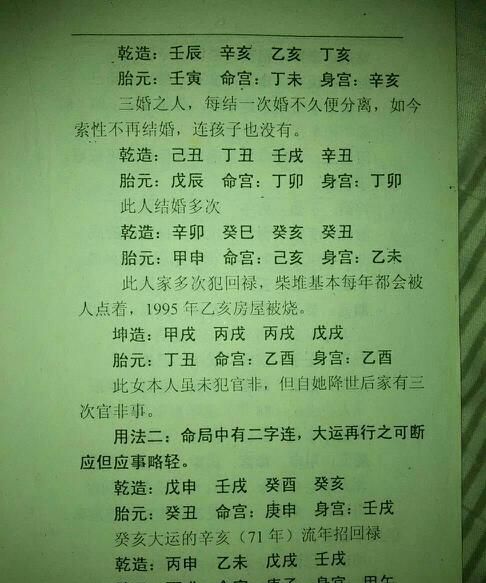 乾造：壬辰 辛亥 乙亥 丁亥
胎元：壬寅 命宫：丁未 身宫：辛亥
三婚之人，每结一次婚不久便分离，如今
索性不再结婚，连孩子也没有。
乾造：己丑 丁丑 壬戌 辛丑
胎元：戊辰 命宫：丁卯 身宫：丁卯
此人结婚多次
乾造：辛卯 癸巳 癸亥 癸丑
胎元：甲申 命宫：己亥 身宫：乙未
此人家多次犯回禄，柴堆基本每年都会被
人点着，1995年乙亥房屋被烧。
坤造：甲戌 丙戌 丙戌 戊戌
胎元：丁丑 命宫：乙酉 身宫：乙酉
此女本人虽未犯官非，但自她降世后家有三
次官非事。
用法二：命局中有二字连，大运再行之可断
应但应事略轻。
乾造：戊申 壬戌 癸酉 癸亥
胎元：癸丑 命宫：庚申 身宫：壬戌
癸亥大运的辛亥（71年）流年招回禄
乾造：丙申 乙未 戊戌 壬戌